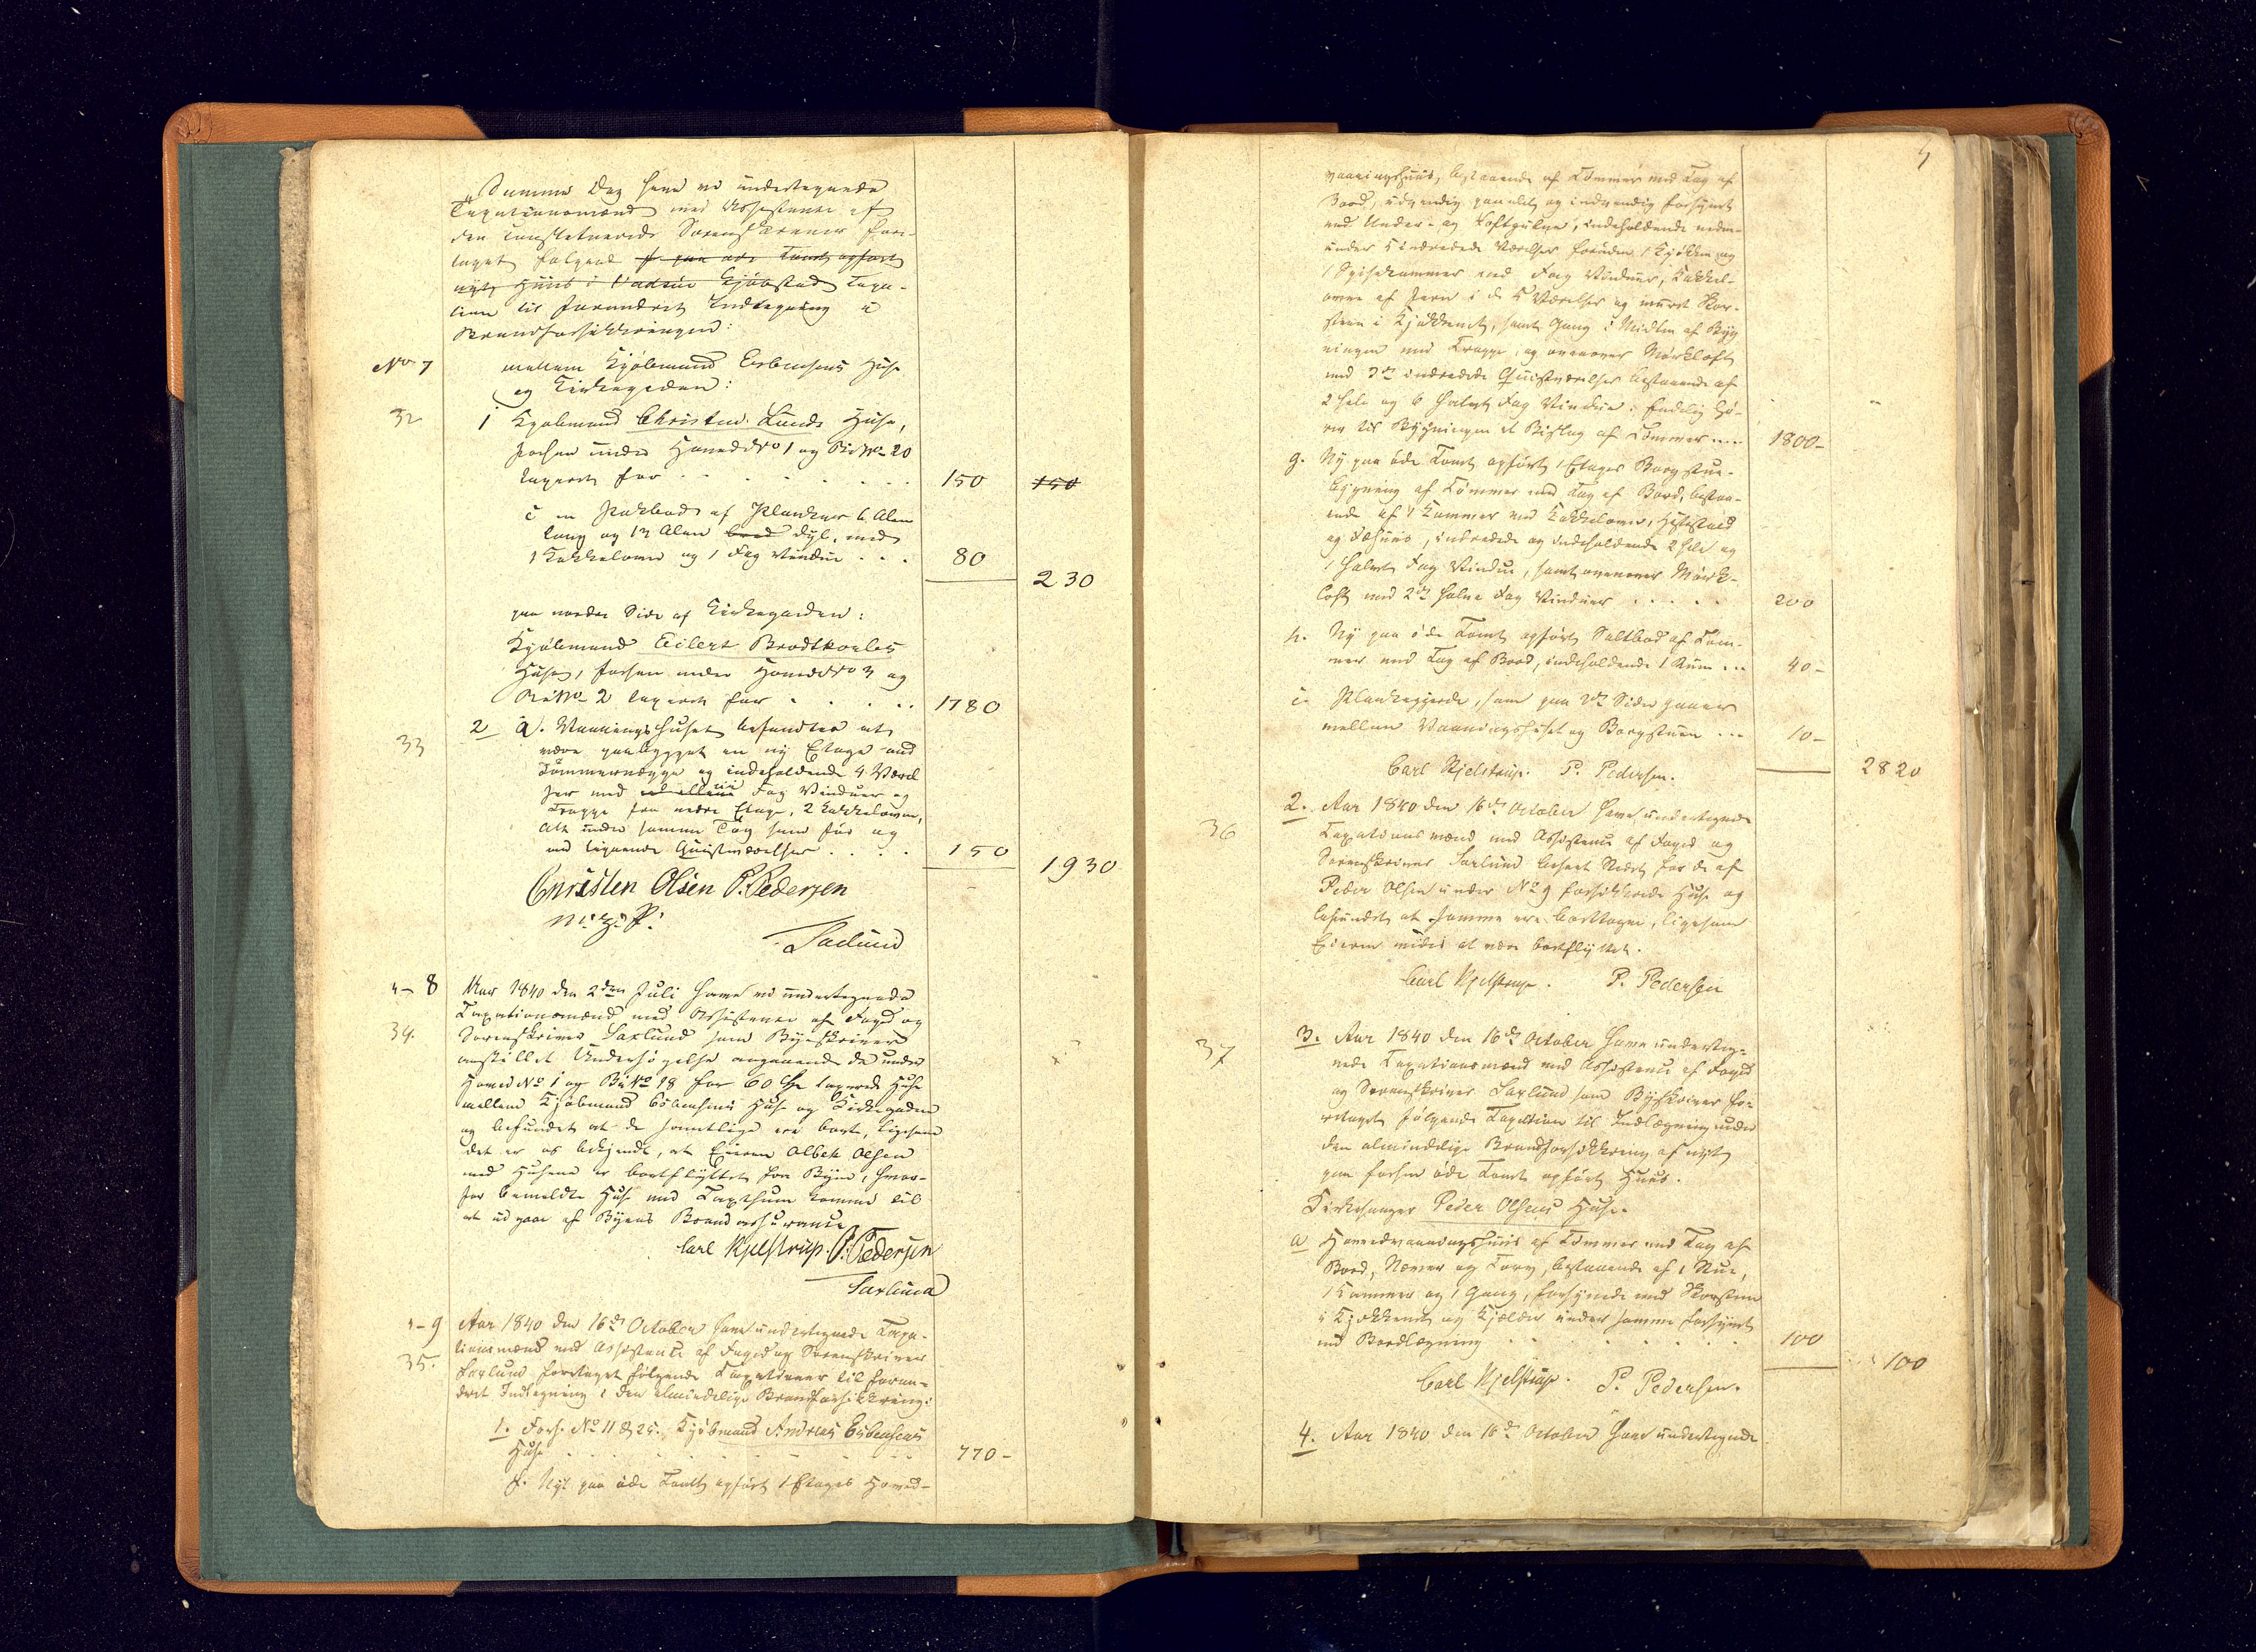 Samme Dag have vi undertegnede
Taxationsmænd med Assistence af
den constituerede Sorenskriver fore-
taget følgende f. paa øde Tomt opført
nyt Huus i Vadsøe Kjøbstad Taxa-
tion til forandret Indtegning i
Brandforsikkringen:
No 7 mellem Kjøbmand Esbensens Huse
og Kirkegaden:
32 1 Kjøbmand Christen Lunds Huse,
forhen under Hoved No 1 og Bi No 20
taxeret for . . . . . . 150 150
i en Pakbod af Planker 6 Alen
lang og 13 Alen bred dyb, med
1 Kakkelovn og 1 Fag Vindue . . . 80
230
paa nordre Side af Kirkegaden:
Kjøbmand Eilert Brodtkorbs
Huse, forhen under Hoved No 3 og
Bi No 2 taxeret for . . . . . 1780
33 2 a. Vaaningshuset befandtes at
være paabygget en ny Etage med
Tømmervægge og indeholdende 4 Værel
ser med Fag Vinduer og
Trappe fra nedre Etage, 2 Kakkelovne,
Alt under samme Tag som før og
med lignende Qvistværelser . . . . 150
1930
Christen Olsen P. Pedersen
m. p. P.
Saxlund
"- 8 Aar 1840 den 2den Juli have vi undertegnede
Taxationsmænd med Assistence af Foged og
34. Sorenskriver Saxlund som Byeskriver
anstillet Undersøgelse angaaende de under
Hoved No 1 og Bi No 18 for 60 Spd taxerede Huse
mellem Kjøbmand Esbensens Huse og Kirkegaden
og befundet at de samtlige ere borte, ligesom
det er os bekjendt, at Eieren Albek Olsen
med Husene er bortflyttet fra Byen, hvor-
for bemeldte Huse med Taxtsum komme til
at udgaae af Byens Brandassurance
Carl Kjelstrup. P. Pedersen
Saxlund
"- 9 Aar 1840 den 16de October have undertegnede Taxa-
tionsmænd med Assistence af Foged og Sorenskriver
35. Saxlund foretaget følgende Taxationer til foran-
dret Indtegning i den almindelige Brandforsikkring:
1. Forh. No 11 & 25. Kjøbmand Andreas Esbensens
Huse . . . . . . . . . 770-
f. Nyt paa øde Tomt opført 1 Etages Hoved-
5
vaaningshuus, bestaaende af Tømmer med Tag af
Bord, udvendig paneelt og indvendig forsynet
med Under- og Loftgulve, indeholdende neden-
under 5 indredede Værelser foruden 1 Kjøkken og
1 Spisekammer med Fag Vinduer, Kakkel-
ovne af Jern i de 5 Værelser og muret Skor-
steen i Kjøkkenet, samt Gang i Midten af Byg
ningen med Trappe, og ovenover Mørkloft
med 3de indredede Qvistværelser bestaaende af
2 hele og 6 halve Fag Vinduer. Endelig hø-
rer til Bygningen et Bislag af Tømmer .... 1800-
g. Ny paa øde Tomt opført 1 Etages Borgstue-
bygning af Tømmer med Tag af Bord, bestaa-
ende af 1 Kammer med Kakkelovn, Hestestald
og Fæhuus, indredede og indeholdende 2 hele og
1 halvt Fag Vindue, samt ovenover Mørk-
loft med 2de halve Fag Vinduer . . . . . 200
h. Ny paa øde Tomt opført Saltbod af Tøm-
mer med Tag af Bord, indeholdende 1 Rum ... 40-
i. Plankegjerde, som paa 2de Sider gaaer
mellem Vaaningshuset og Borgstuen ... 10-
2820
Carl Kjelstrup. P. Pedersen.
36 2. Aar 1840 den 16de October have undertegnede
Taxationsmænd med Assistence af Foged og
Sorenskriver Saxlund beseet Stedet for de af
Peder Olsen under No 9 forsikkrede Huse og
befundet at samme ere borttagne, ligesom
Eieren vides at være bortflyttet.
Carl Kjelstrup. P. Pedersen
37 3. Aar 1840 den 16de October have underteg-
nede Taxationsmænd med Assistence af Foged
og Sorenskriver Saxlund som Byskriver fo-
retaget følgende Taxation til Indlægning under
den almindelige Brandforsikkring af nyt
paa forhen øde Tomt opført Huus.
Kirkesanger Peder Olsens Huse.
a Hovedvaaningshuus af Tømmer med Tag af
Bord, Næver og Torv, bestaaende af 1 Stue,
1 Kammer og 1 Gang, forsynede med Skorsten
i Kjøkkenet og Kjælder under samme forsynet
med Bordlægning . . . . . . 100
100
Carl Kjelstrup. P. Pedersen.
4. Aar 1840 den 16de October have undertegnede